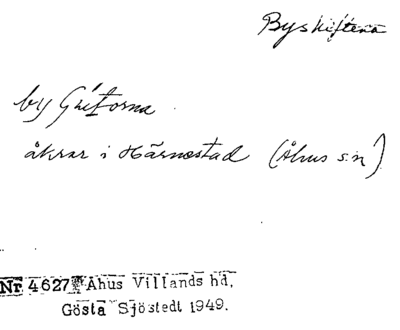 Byskiftena
by
åkrar i Härnestad (Åhus sn)
Nr 4627 Åhus Villands hd.
Gösta Sjöstedt 1949.